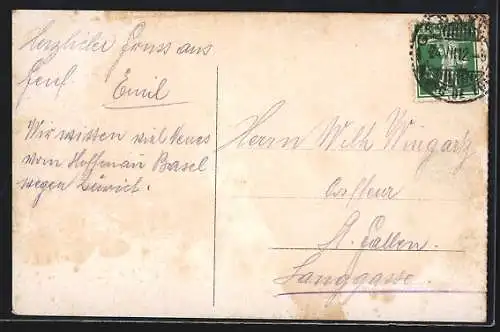 Herzlicher Gruss aus
Genf.
Emil
Wir wissen viel Neues
vom Hoffmann Basel
wegen Zürich.
Herrn Wilh Wingartz
Coiffeur
St. Gallen.
Langgasse.